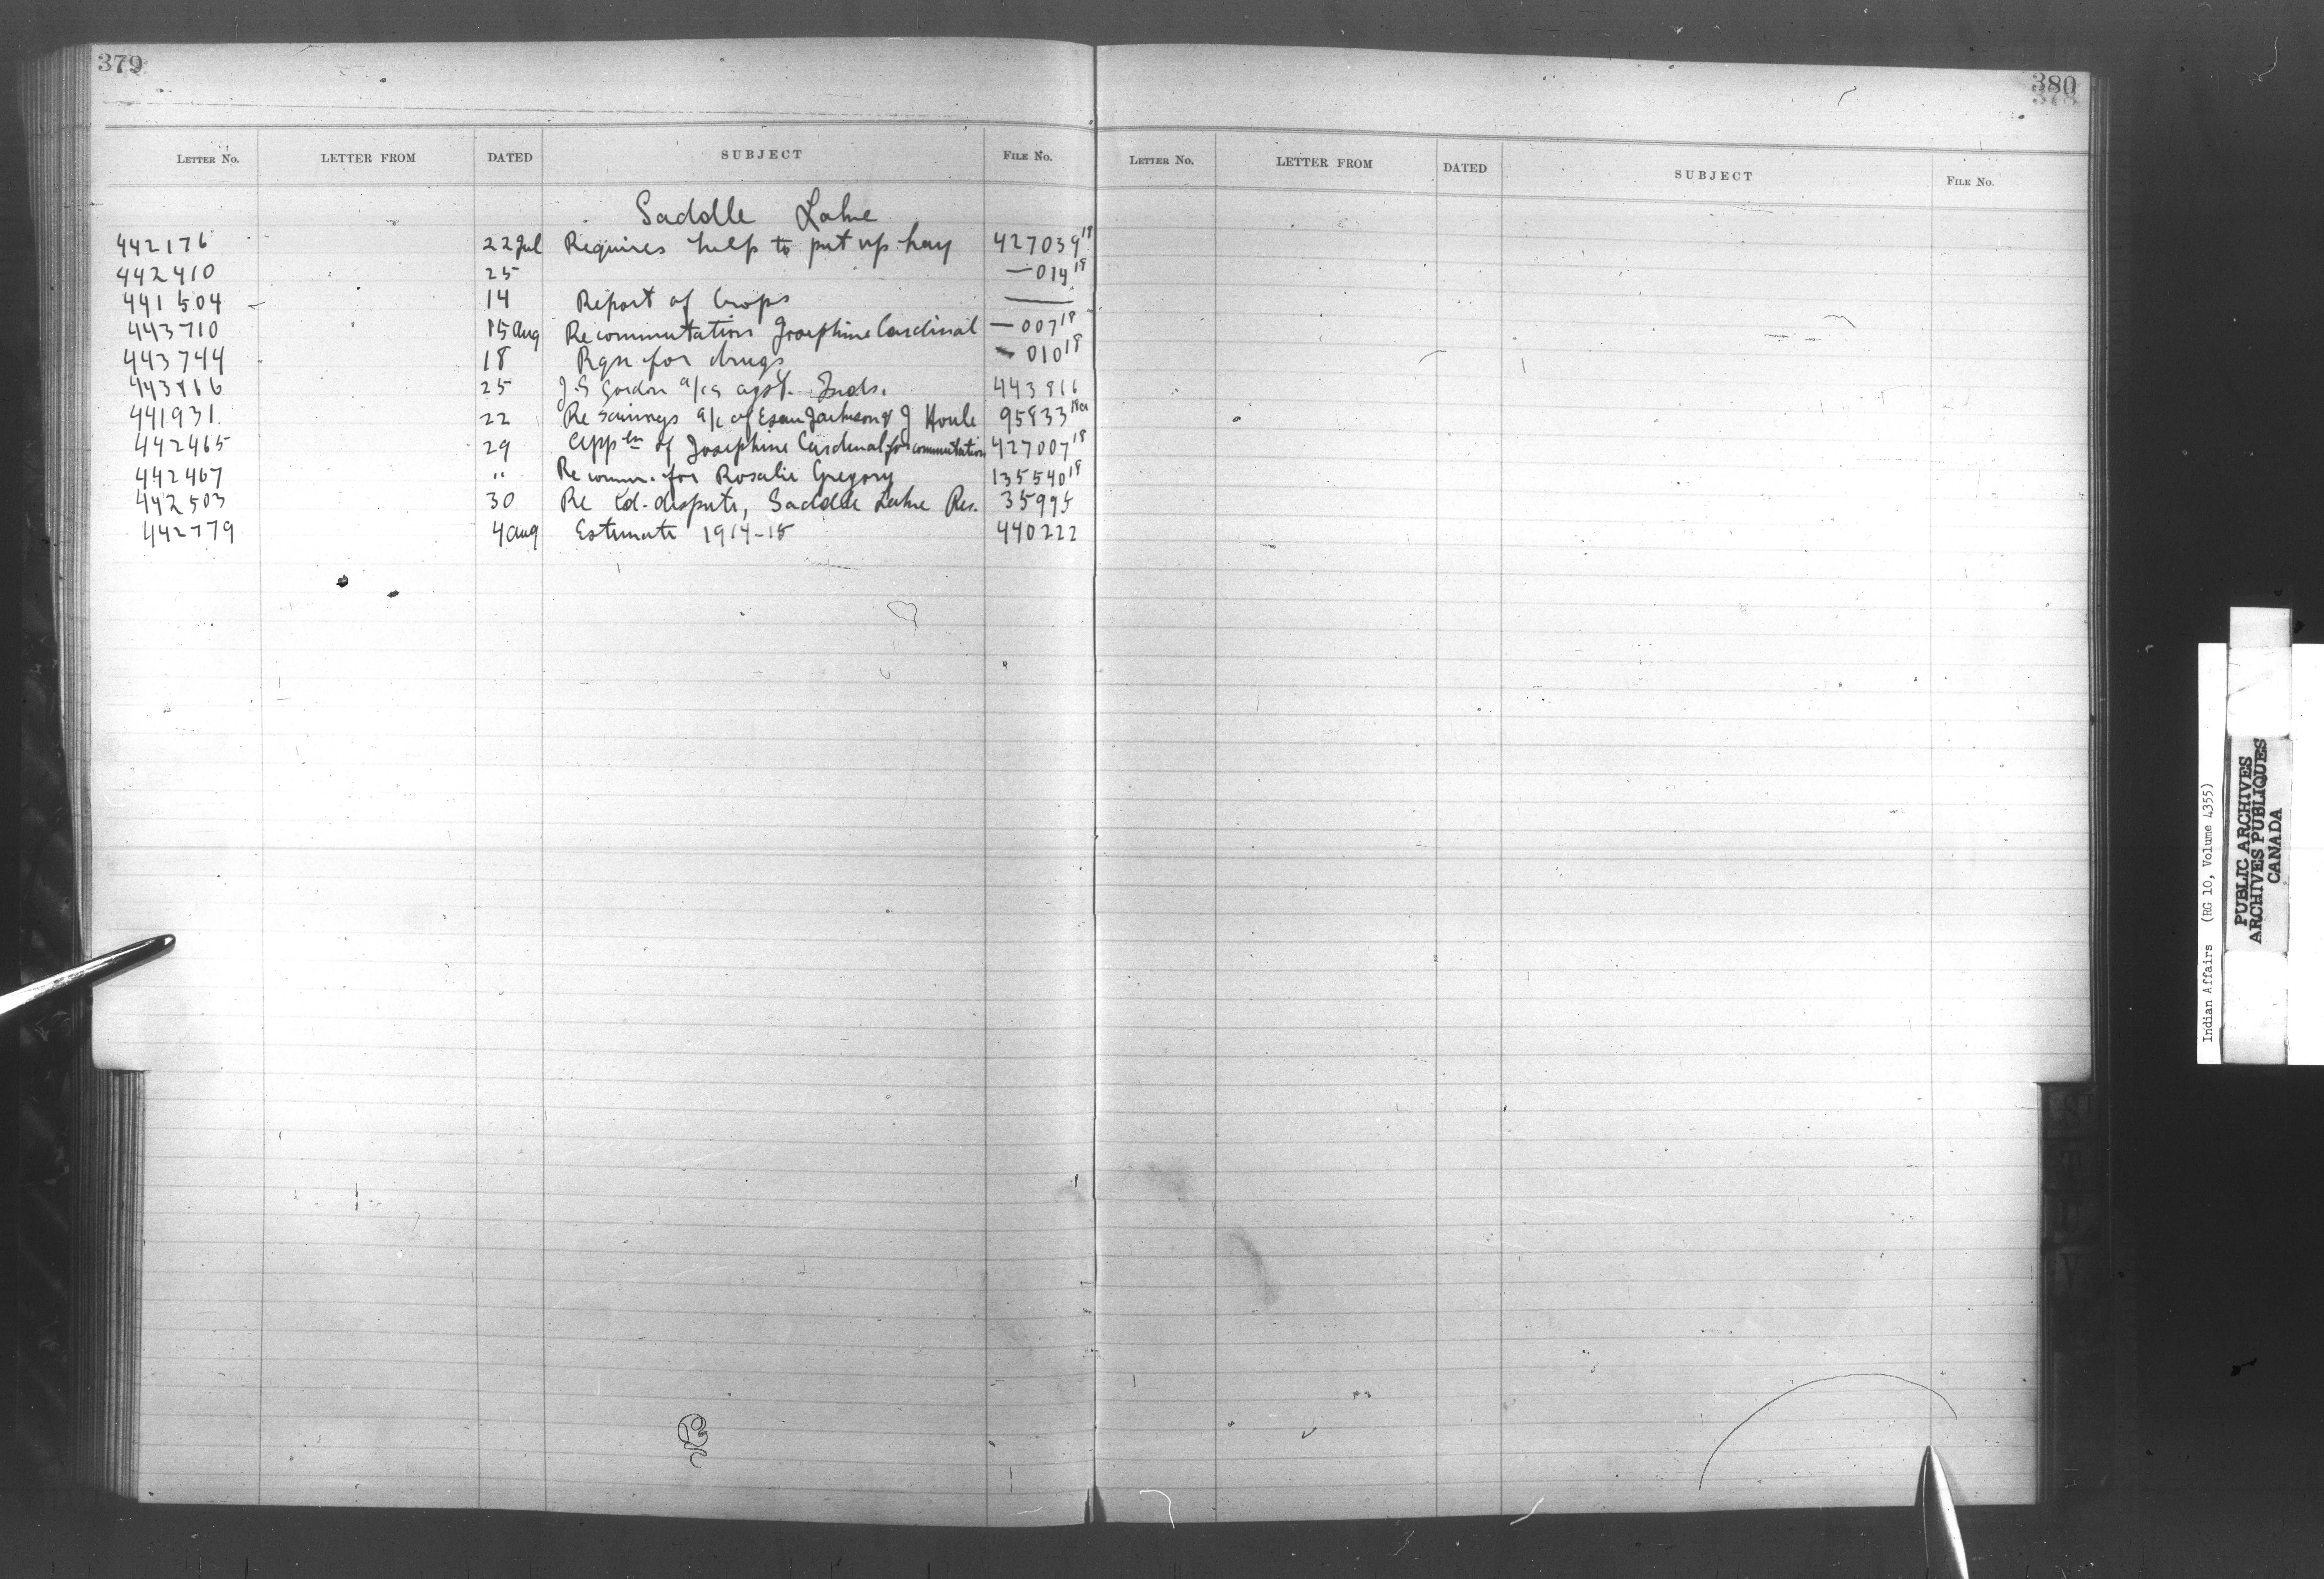 379
LETTER No. LETTER FROM DATED SUBJECT FILE No.
Saddle Lake
442176 22 Jul Requires help to put up hay 427039 18
442410 25 — 014 18
441504 14 Report of Crops —
443710 15 Aug Re commutation Josephine Cardinal — 007 18
443744 18 Rqn for drugs — 010 18
443816 25 J.G Gordon a/cs agst. Inds. 443816
441931 22 Re Savings a/c of Esau Jackson & J Houle 95833 18a
442465 29 Appln of Josephine Cardinal for commutation 427007 18
442467 " Re comm. for Rosalie Gregory 135540 18
442503 30 Re Ld. dispute, Saddle Lake Res. 35995
442779 4 Aug Estimate 1914-15 440222
380
378
LETTER No. LETTER FROM DATED SUBJECT FILE No.
S
T
U
V
Indian Affairs (RG 10, Volume 4355)
PUBLIC ARCHIVES
ARCHIVES PUBLIQUES
CANADA